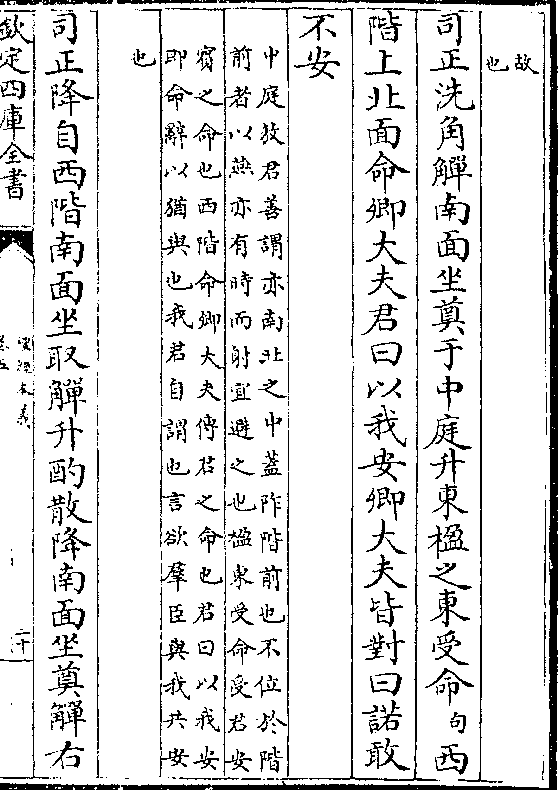 故
也
司正洗角觶南面坐奠于中庭升東楹之東受命句西
階上北面命卿大夫君曰以我安卿大夫皆對曰諾敢
不安
中庭敖君善謂亦南北之中蓋阼階前也不位於階
前者以燕亦有時而射宜避之也楹東受命受君安
賓之命也西階命卿大夫傳君之命也君曰以我安
即命辭以猶與也我君自謂也言欲羣臣與我共安
也
司正降自西階南面坐取觶升酌散降南面坐奠觶右
欽定四庫全書